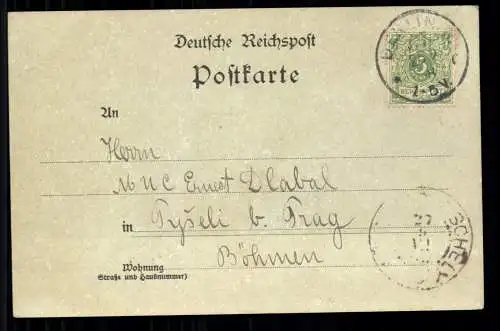 Deutsche Reichspost
Postkarte
BERLIN
5
7-8V.
An
Herrn
MUC Ernest Dlabal
in Tyšeli b. Prag
Böhmen
Wohnung
(Straße und Hausnummer)
27